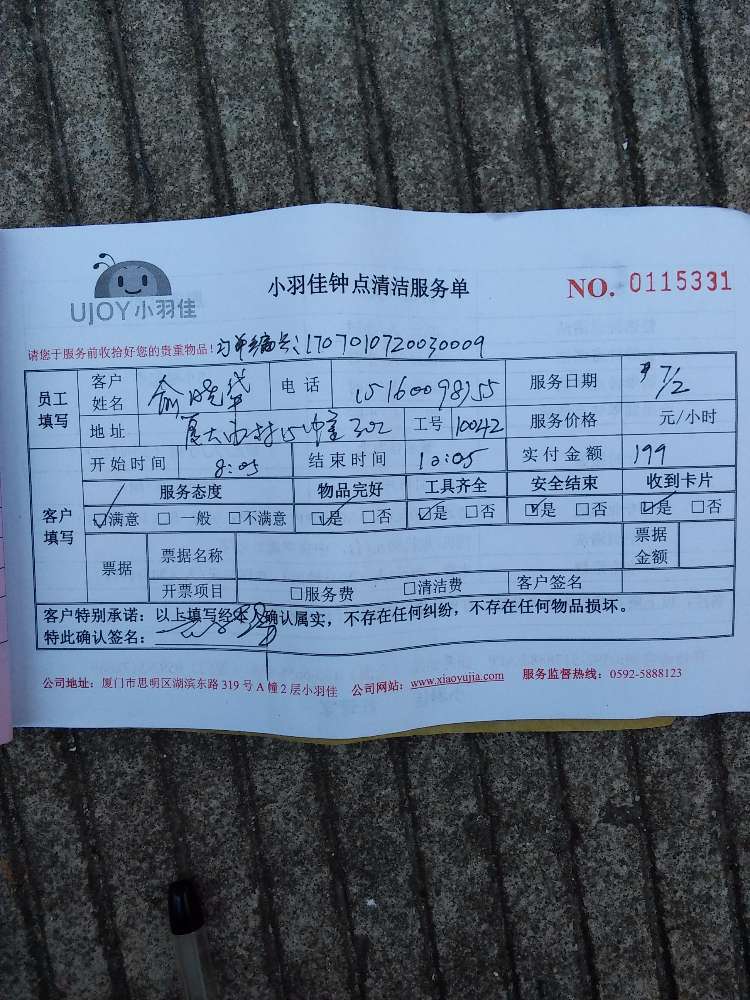 UJOY小羽佳
小羽佳钟点清洁服务单
NO. 0115331
请您于服务前收拾好您的贵重物品！订单编号:1707010720030009
员工填写 客户姓名 俞晓 电话 服务日期 7/2
地址 302 工号 10042 服务价格 元/小时
客户填写 开始时间 8:05 结束时间 10:05 实付金额 199
服务态度 物品完好 工具齐全 安全结束 收到卡片
☑满意 □一般 □不满意 ☑是 □否 ☑是 □否 ☑是 □否 ☑是 □否
票据 票据名称 票据金额
开票项目 □服务费 □清洁费 客户签名
客户特别承诺：以上填写经本人确认属实，不存在任何纠纷，不存在任何物品损坏。
特此确认签名：
公司地址：厦门市思明区湖滨东路319号A幢2层小羽佳 公司网站：www.xiaoyujia.com 服务监督热线：0592-5888123